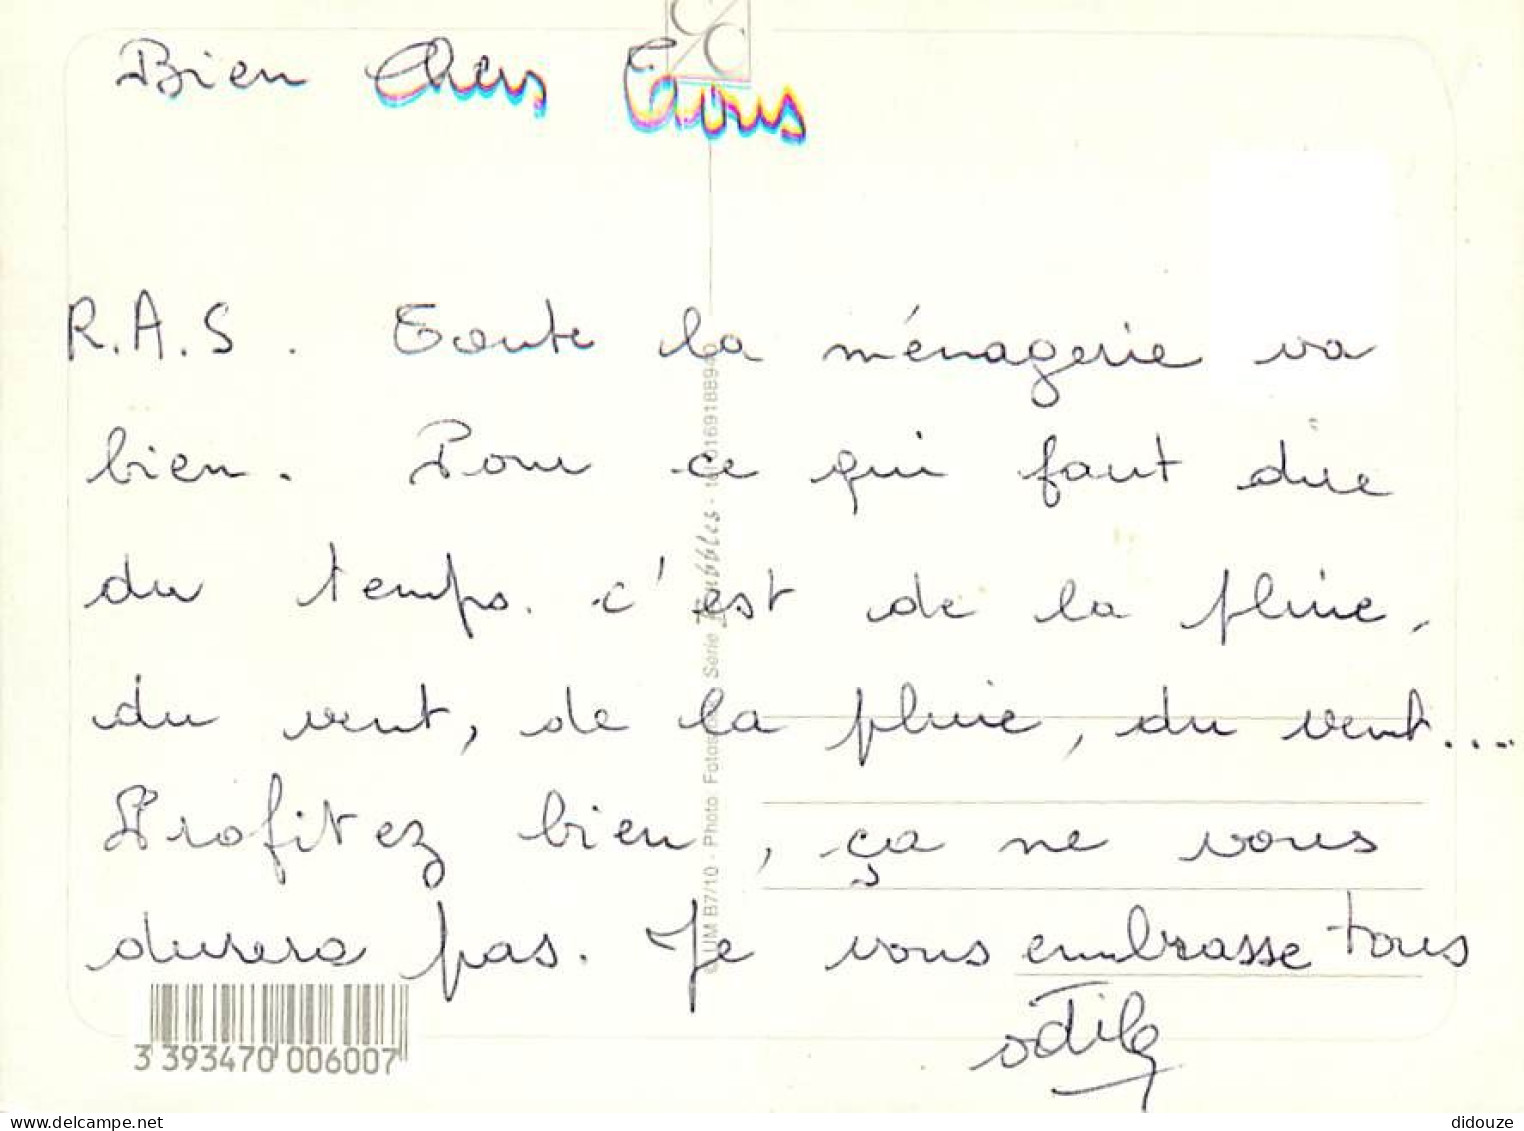 CC
Bien Chers Tous
R.A.S. Toute la ménagerie va
bien. Pour ce qui faut dire
du temps. c'est de la pluie,
du vent, de la pluie, du vent....
Profitez bien, ça ne vous
durera pas. Je vous embrasse tous
Odile
LJM B7/10 - Photo: Serie
3 393470 006007
www.delcampe.net
didouze